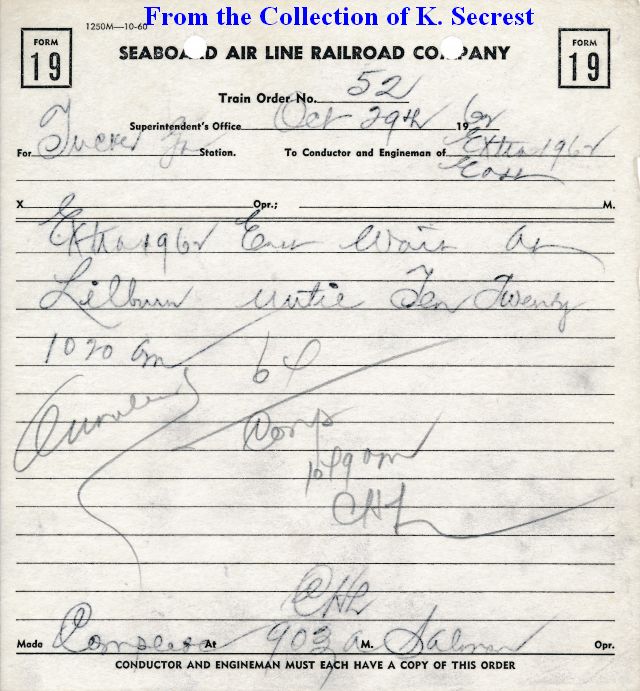 From the Collection of K. Secrest
1250M—10-60
FORM 19
SEABOARD AIR LINE RAILROAD COMPANY
FORM 19
Train Order No. 52
Superintendent's Office Oct 29th 1962
For Tucker Ga Station. To Conductor and Engineman of Extra 1962
East
X Opr.; M.
Extra 1962 East Wait at
Lilburn until Ten Twenty
1020 am
Comp
am
CHL
CHL
Made Complete At 903 a M. Salmon Opr.
CONDUCTOR AND ENGINEMAN MUST EACH HAVE A COPY OF THIS ORDER